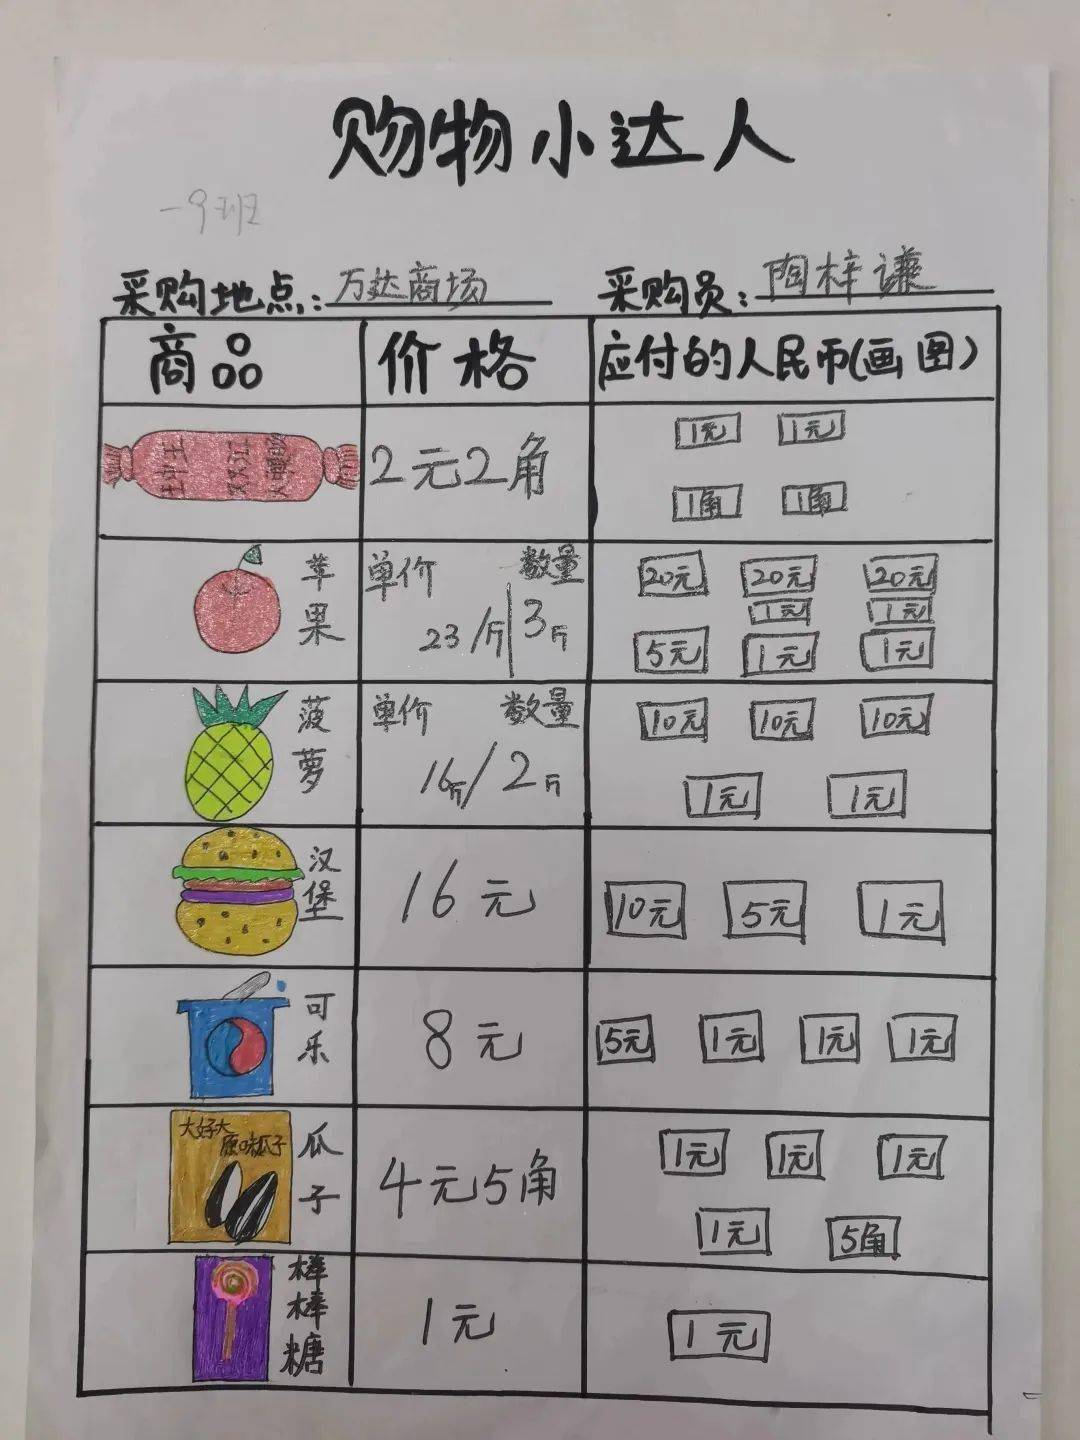 购物小达人
一9班
采购地点:万达商场 采购员:陶梓谦
商品 价格 应付的人民币(画图)
王中王 火腿肠 2元2角 1元 1元
1角 1角
苹果 单价 数量 20元 20元 20元
23/斤 3斤 1元 1元
5元 1元 1元
菠萝 单价 数量 10元 10元 10元
16斤/2斤 1元 1元
汉堡 16元 10元 5元 1元
可乐 8元 5元 1元 1元 1元
大好大
原味瓜子
瓜子 4元5角 1元 1元 1元
1元 5角
棒棒糖 1元 1元